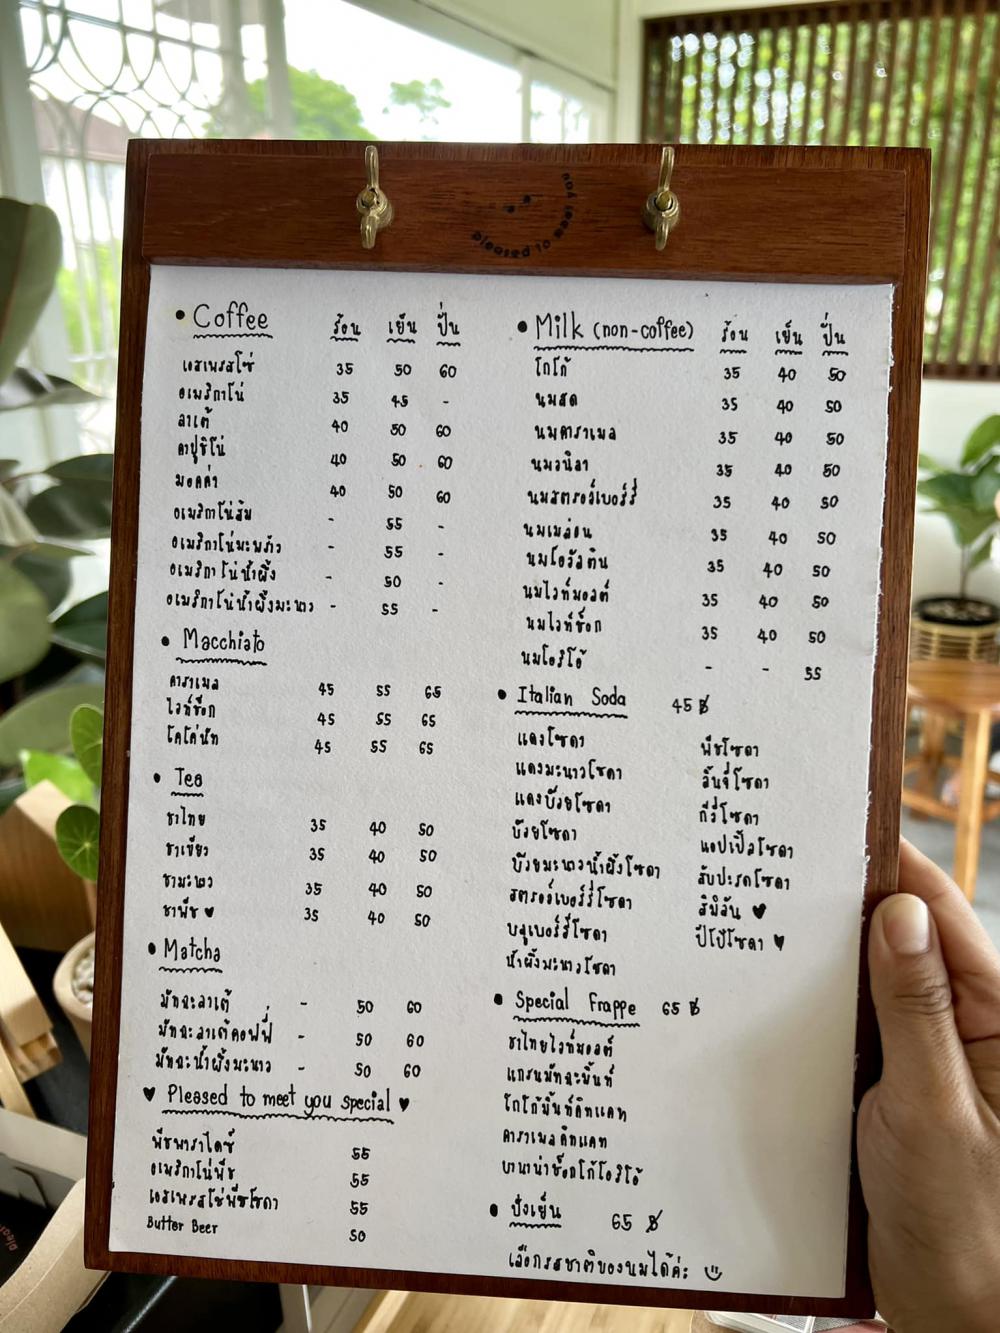 pleased to meet you
• Coffee ร้อน เย็น ปั่น
เอสเพรสโซ่ 35 50 60
อเมริกาโน่ 35 45 -
ลาเต้ 40 50 60
คาปูชิโน่ 40 50 60
มอคค่า 40 50 60
อเมริกาโน่ส้ม - 55 -
อเมริกาโน่มะพร้าว - 55 -
อเมริกาโน่น้ำผึ้ง - 50 -
อเมริกาโน่น้ำผึ้งมะนาว - 55 -
• Macchiato
คาราเมล 45 55 65
ไวท์ช็อก 45 55 65
โคโค่นัท 45 55 65
• Tea
ชาไทย 35 40 50
ชาเขียว 35 40 50
ชามะนาว 35 40 50
ชาพีช ♥ 35 40 50
• Matcha
มัทฉะลาเต้ - 50 60
มัทฉะลาเต้คอฟฟี่ - 50 60
มัทฉะน้ำผึ้งมะนาว - 50 60
♥ Pleased to meet you special ♥
พีชพาราไดซ์ 55
อเมริกาโน่พีช 55
เอสเพรสโซ่พีชโซดา 55
Butter Beer 50
• Milk (non-coffee) ร้อน เย็น ปั่น
โกโก้ 35 40 50
นมสด 35 40 50
นมคาราเมล 35 40 50
นมวนิลา 35 40 50
นมสตรอว์เบอร์รี่ 35 40 50
นมเมล่อน 35 40 50
นมโอวัลติน 35 40 50
นมไวท์มอลต์ 35 40 50
นมไวท์ช็อก 35 40 50
นมโอริโอ้ - - 55
• Italian Soda 45 ฿
แดงโซดา
แดงมะนาวโซดา
แดงบ๊วยโซดา
บ๊วยโซดา
บ๊วยมะนาวน้ำผึ้งโซดา
สตรอว์เบอร์รี่โซดา
บลูเบอร์รี่โซดา
น้ำผึ้งมะนาวโซดา
พีชโซดา
ลิ้นจี่โซดา
กีวี่โซดา
แอปเปิ้ลโซดา
สับปะรดโซดา
สิมิลัน ♥
ปีโป้โซดา ♥
• Special Frappe 65 ฿
ชาไทยไวท์มอลต์
แกรนมัทฉะมิ้นท์
โกโก้มิ้นท์คิทแคท
คาราเมลคิทแคท
บานาน่าช็อกโก้โอริโอ้
• ปังเย็น 65 ฿
เลือกรสชาติของนมได้ค่ะ